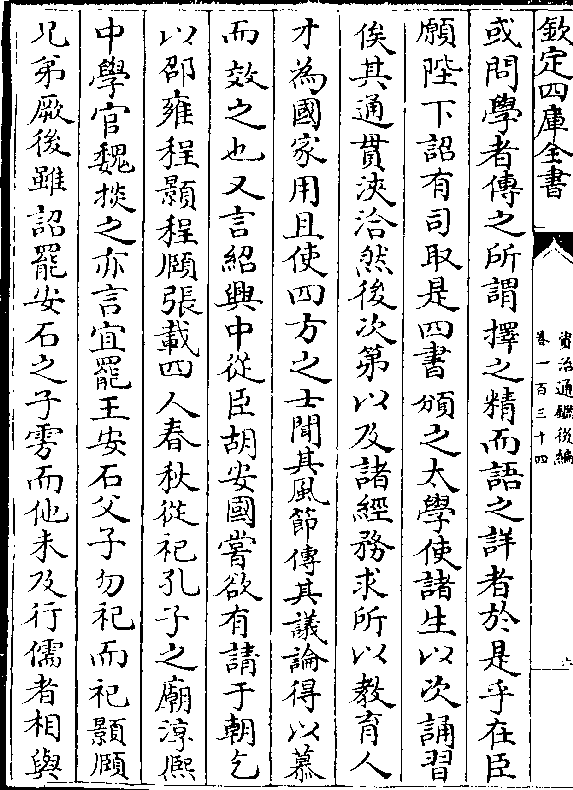 欽定四庫全書
資治通鑑後編
卷一百三十四
或問學者傳之所謂擇之精而語之詳者於是乎在臣
願陛下詔有司取是四書頒之太學使諸生以次誦習
俟其通貫浹洽然後次第以及諸經務求所以教育人
才為國家用且使四方之士聞其風節傳其議論得以慕
而效之也又言紹興中從臣胡安國嘗欲有請于朝乞
以邵雍程顥程頤張載四人春秋從祀孔子之廟淳熙
中學官魏掞之亦言宜罷王安石父子勿祀而祀顥頤
兄弟厥後雖詔罷安石之子雱而他未及行儒者相與